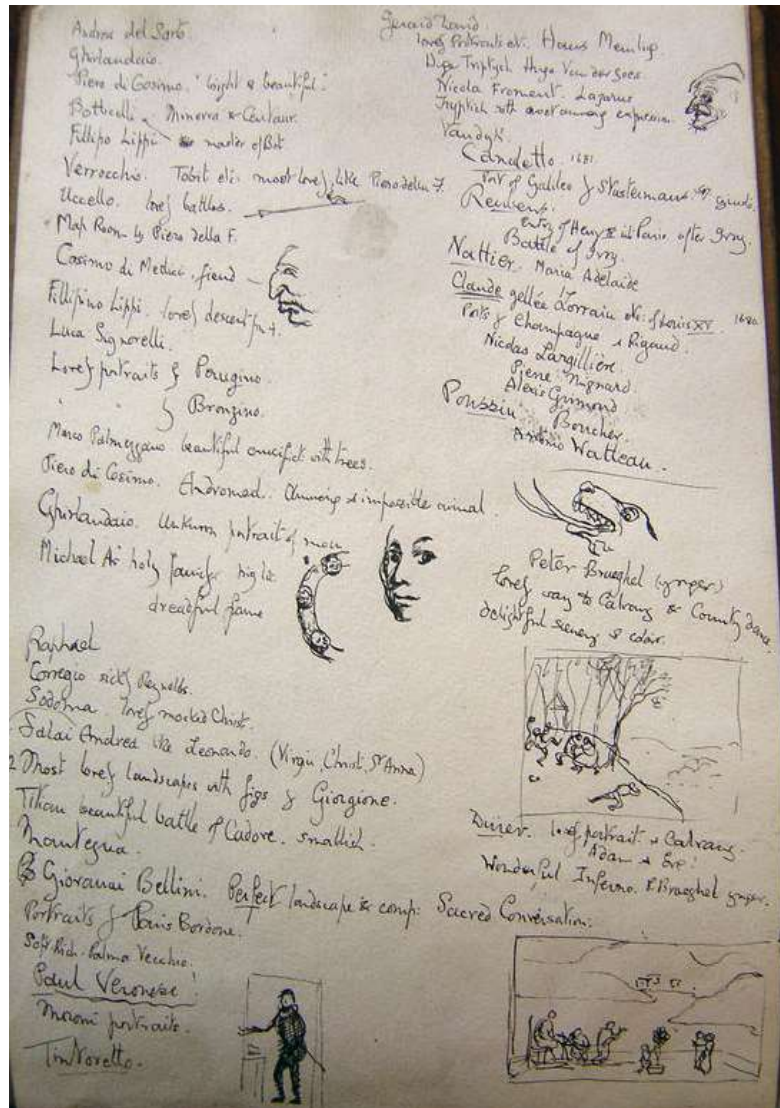 Andrea del Sarto.
Ghirlandaio.
Piero di Cosimo. "bright & beautiful".
Botticelli Minerva & Centaur.
Fillipo Lippi master of Bot
Verrochio. Tobit etc. most lovely, like Piero della F.
Uccello. lovely battles.
Map Room by Piero della F.
Cosimo di Medici, fiend
Fillipino Lippi. lovely descent fr +.
Luca Signorelli.
Lovely portraits by Perugino.
" " by Bronzino.
Marco Palmezzano beautiful crucifict with trees.
Piero di Cosimo. Andromed. Amusing & impossible animal.
Ghirlandaio. Unknown portrait of man
Michael A's holy family
dreadful frame
Raphael
Corregio sickly Reynolds.
Sodoma lovely mocked Christ.
Salai Andrea like Leonardo. (Virgin, Christ, St Anna)
2 Most lovely landscapes with figs by Giorgione.
Titian beautiful battle of Cadore. smallish.
Mantegna.
Giovanni Bellini. Perfect landscape & comp: Sacred Conversation.
Portraits by Paris Bordone.
Soft Rich. Palma Vecchio.
Paul Veronese!
Moroni portraits.
Tintoretto.
Gerard David.
lovely Portraits etc. Hans Memling.
Huge Triptych Hugo Van der Goes.
Nicola Froment. Lazarus
Tryptich with most amusing expression.
Vandyk.
Canaletto. 1681
Port of Galileo by Sustermans
Reubens.
Entry of Henry IV into Paris after Ivry.
Battle of Ivry.
Nattier. Maria Adelaide
Claude gellée Lorrain etc: of Louis XV. 1682
Ports by Champagne & Rigaud.
Nicolas Largillière.
Pierre Mignard.
Alexis Grimond
Poussin Boucher.
Antonio Watteau.
Peter Brueghel (younger)
lovely way to Calvary & Country dance.
delightful scenery & colour.
Durer. lovely portrait & Calvary.
Adam & Eve!
Wonderful Inferno. P. Brueghel younger.